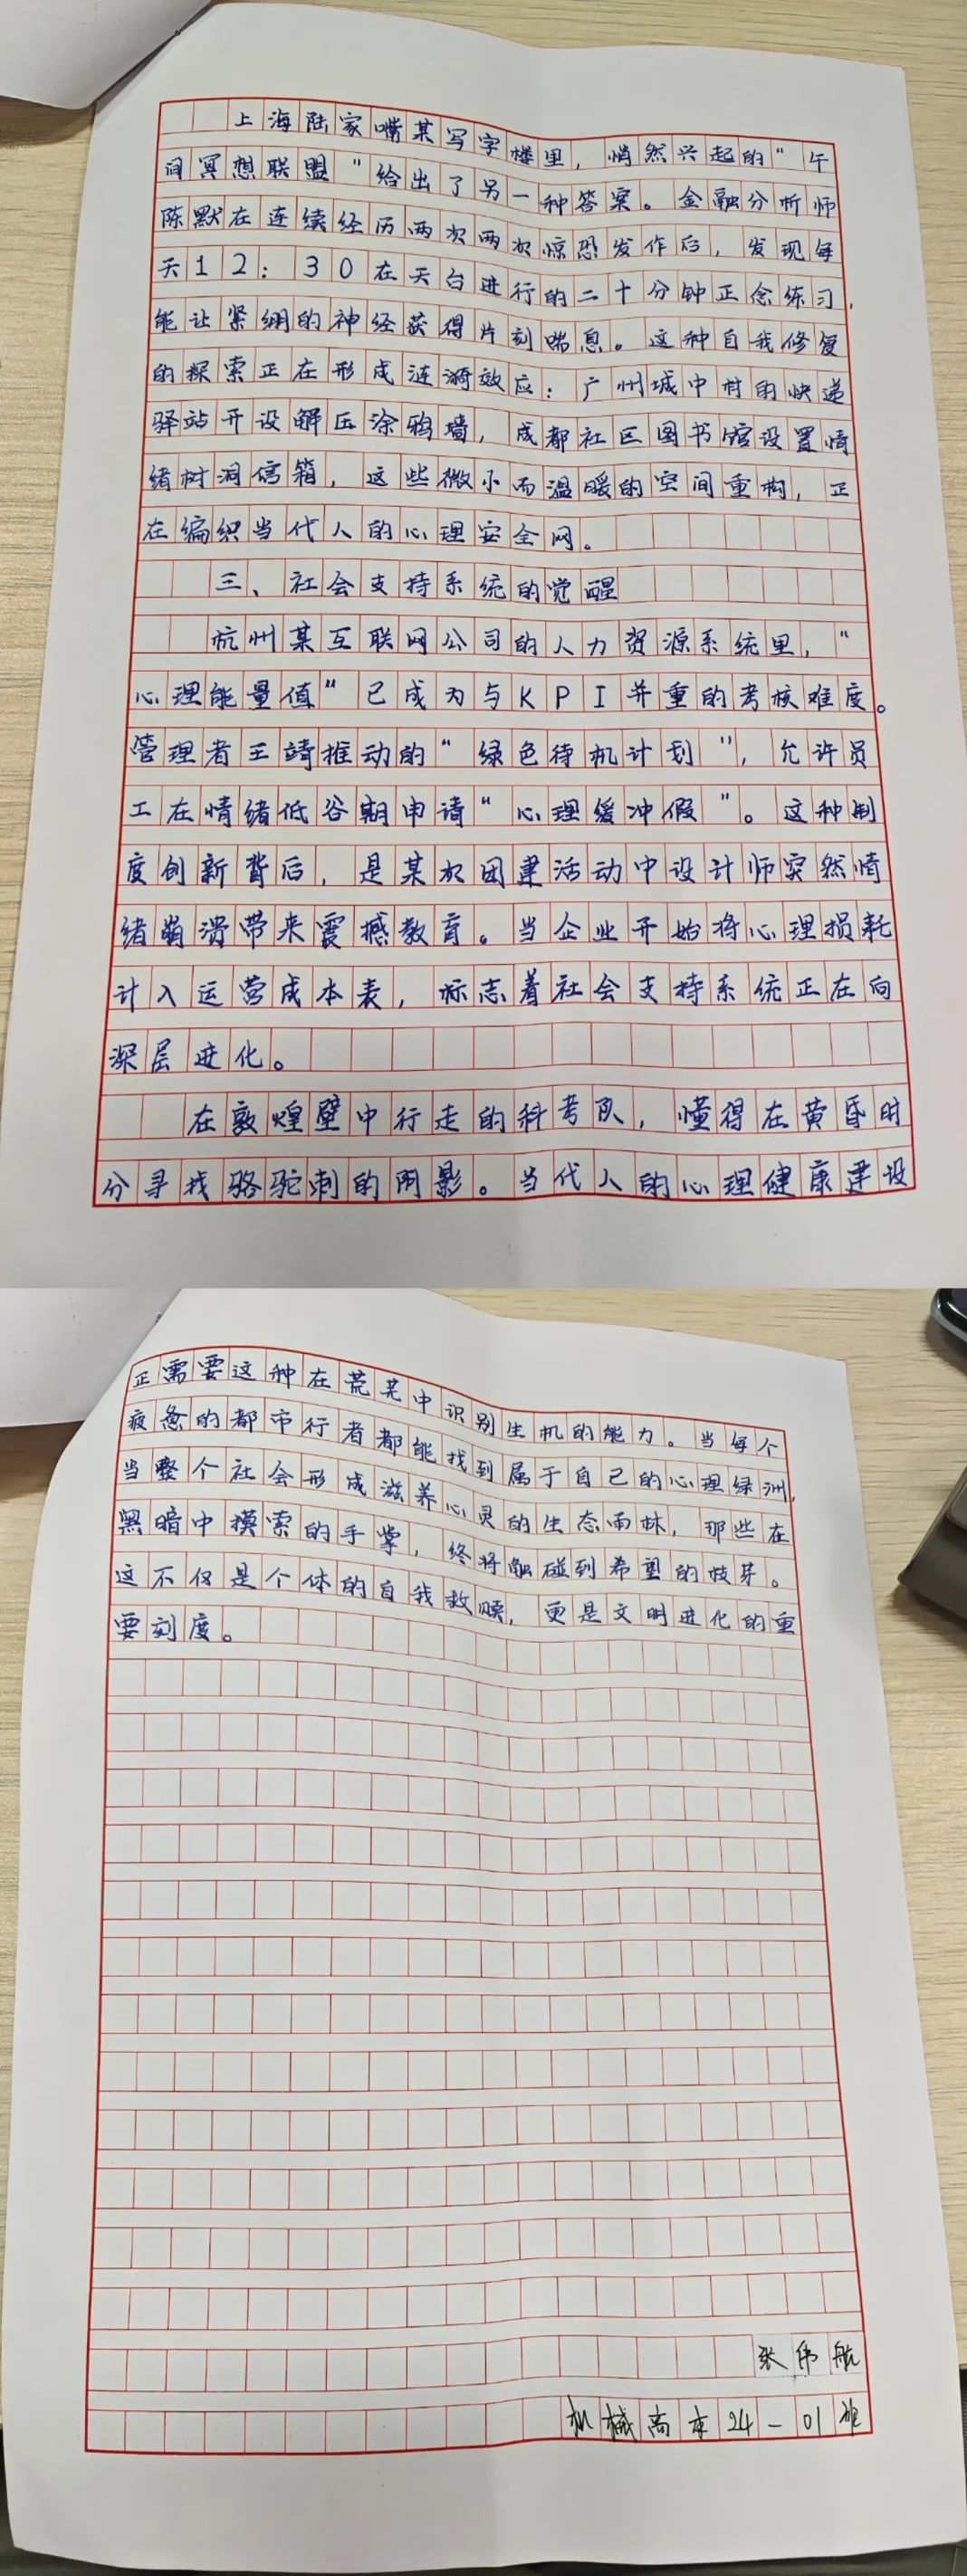 上海陆家嘴某写字楼里，悄然兴起的“午
间冥想联盟”给出了另一种答案。金融分析师
陈默在连续经历两次两次惊恐发作后，发现每
天12：30在天台进行的二十分钟正念练习，
能让紧绷的神经获得片刻喘息。这种自我修复
的探索正在形成涟漪效应：广州城中村的快递
驿站开设解压涂鸦墙，成都社区图书馆设置情
绪树洞信箱，这些微小而温暖的空间重构，正
在编织当代人的心理安全网。
三、社会支持系统的觉醒
杭州某互联网公司的人力资源系统里，“
心理能量值”已成为与KPI并重的考核难度。
管理者王靖推动的“绿色待机计划”，允许员
工在情绪低谷期申请“心理缓冲假”。这种制
度创新背后，是某次团建活动中设计师突然情
绪崩溃带来震撼教育。当企业开始将心理损耗
计入运营成本表，标志着社会支持系统正在向
深层进化。
在敦煌壁中行走的科考队，懂得在黄昏时
分寻找骆驼刺的阴影。当代人的心理健康建设
正需要这种在荒芜中识别生机的能力。当每个
疲惫的都市行者都能找到属于自己的心理绿洲，
当整个社会形成滋养心灵的生态雨林，那些在
黑暗中摸索的手掌，终将触碰到希望的枝芽。
这不仅是个体的自我救赎，更是文明进化的重
要刻度。
张伟航
机械高本24-01班